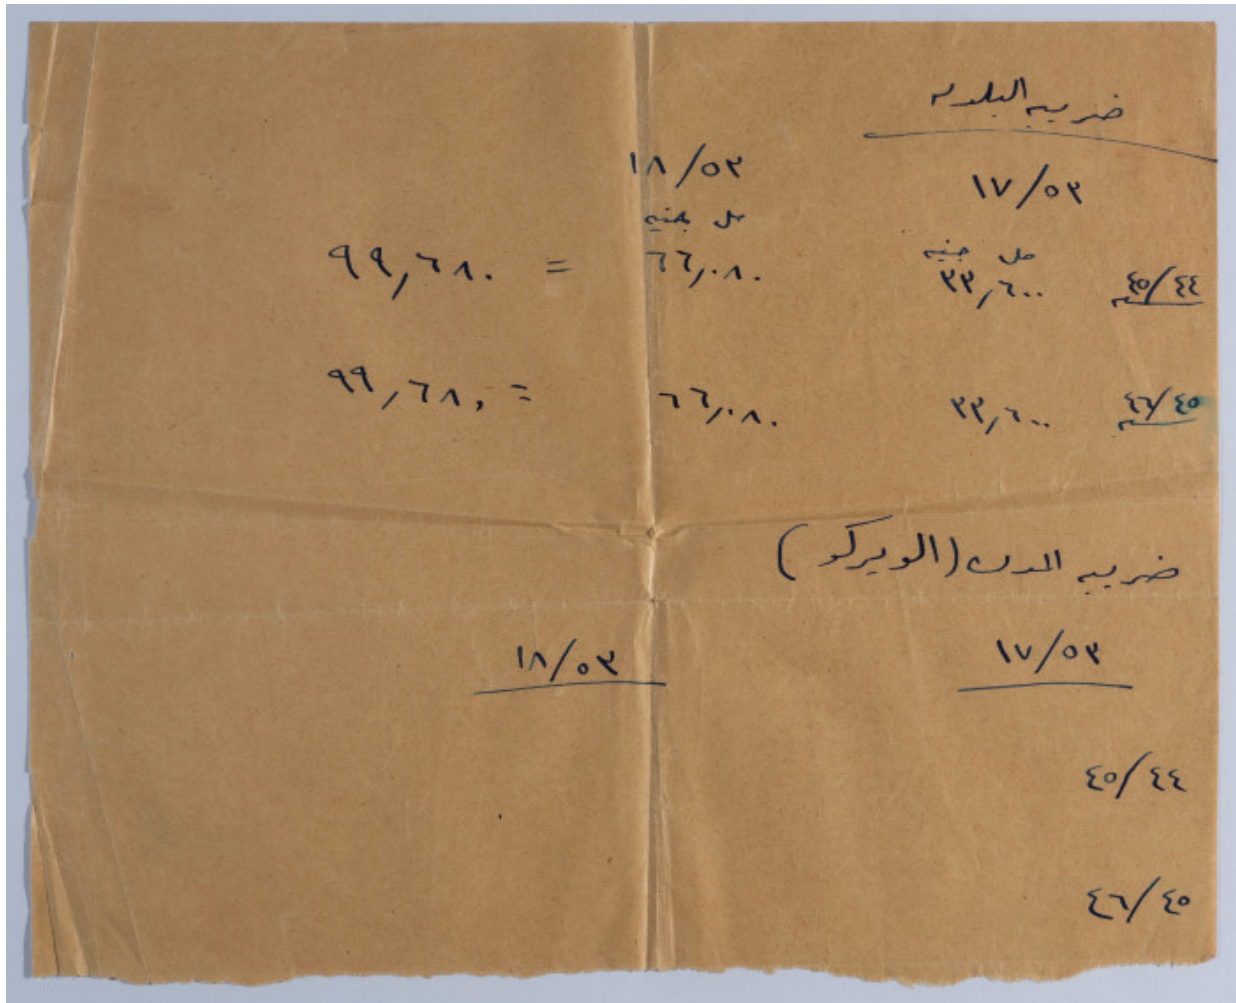 ضريبه البلديه
١٧/٥٣ ١٨/٥٣
مل جنيه مل جنيه
٤٥/٤٤ ٣٣,٦٠٠ ٦٦,٠٨٠ = ٩٩,٦٨٠
سنه
٤٦/٤٥ ٣٣,٦٠٠ ٦٦,٠٨٠ = ٩٩,٦٨٠
سنه
ضريبه المدن (الويركو)
١٧/٥٣ ١٨/٥٣
٤٥/٤٤
٤٦/٤٥